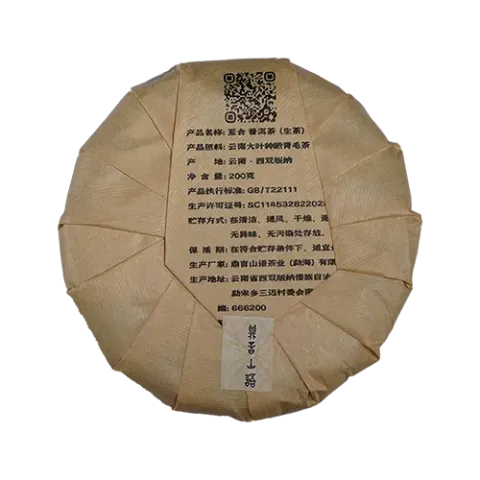 产品名称: 至合 普洱茶 (生茶)
产品原料: 云南大叶种晒青毛茶
产 地: 云南·西双版纳
净 含 量: 200克
产品执行标准: GB/T22111
生产许可证号: SC1145328220
贮存方式: 在清洁、通风、干燥、
无异味、无污染处存放,
保 质 期: 在符合贮存条件下、适宜
生产厂家: 鼎百山语茶业 (勐海) 有限
生产地址: 云南省西双版纳傣族自治
勐宋乡三迈村委会
编: 666200